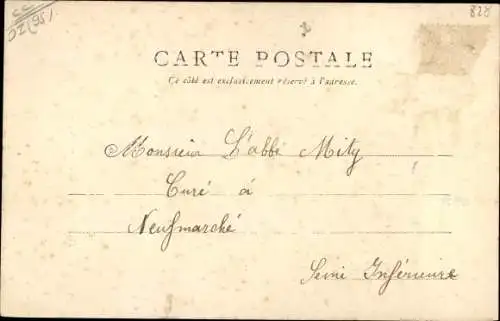 828
CARTE POSTALE
Ce côté est exclusivement réservé à l'adresse.
Monsieur L'abbé Mity
Curé à
Neufmarché
Seine Inférieure